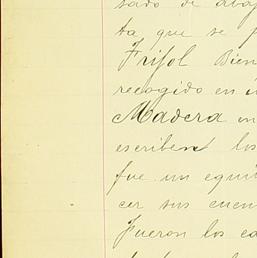 sado de abaj
ta que se p
Frijol Bien
recogido en
Madera en
escriben los
fue un equi
cer sus cuen
Fueron los ca